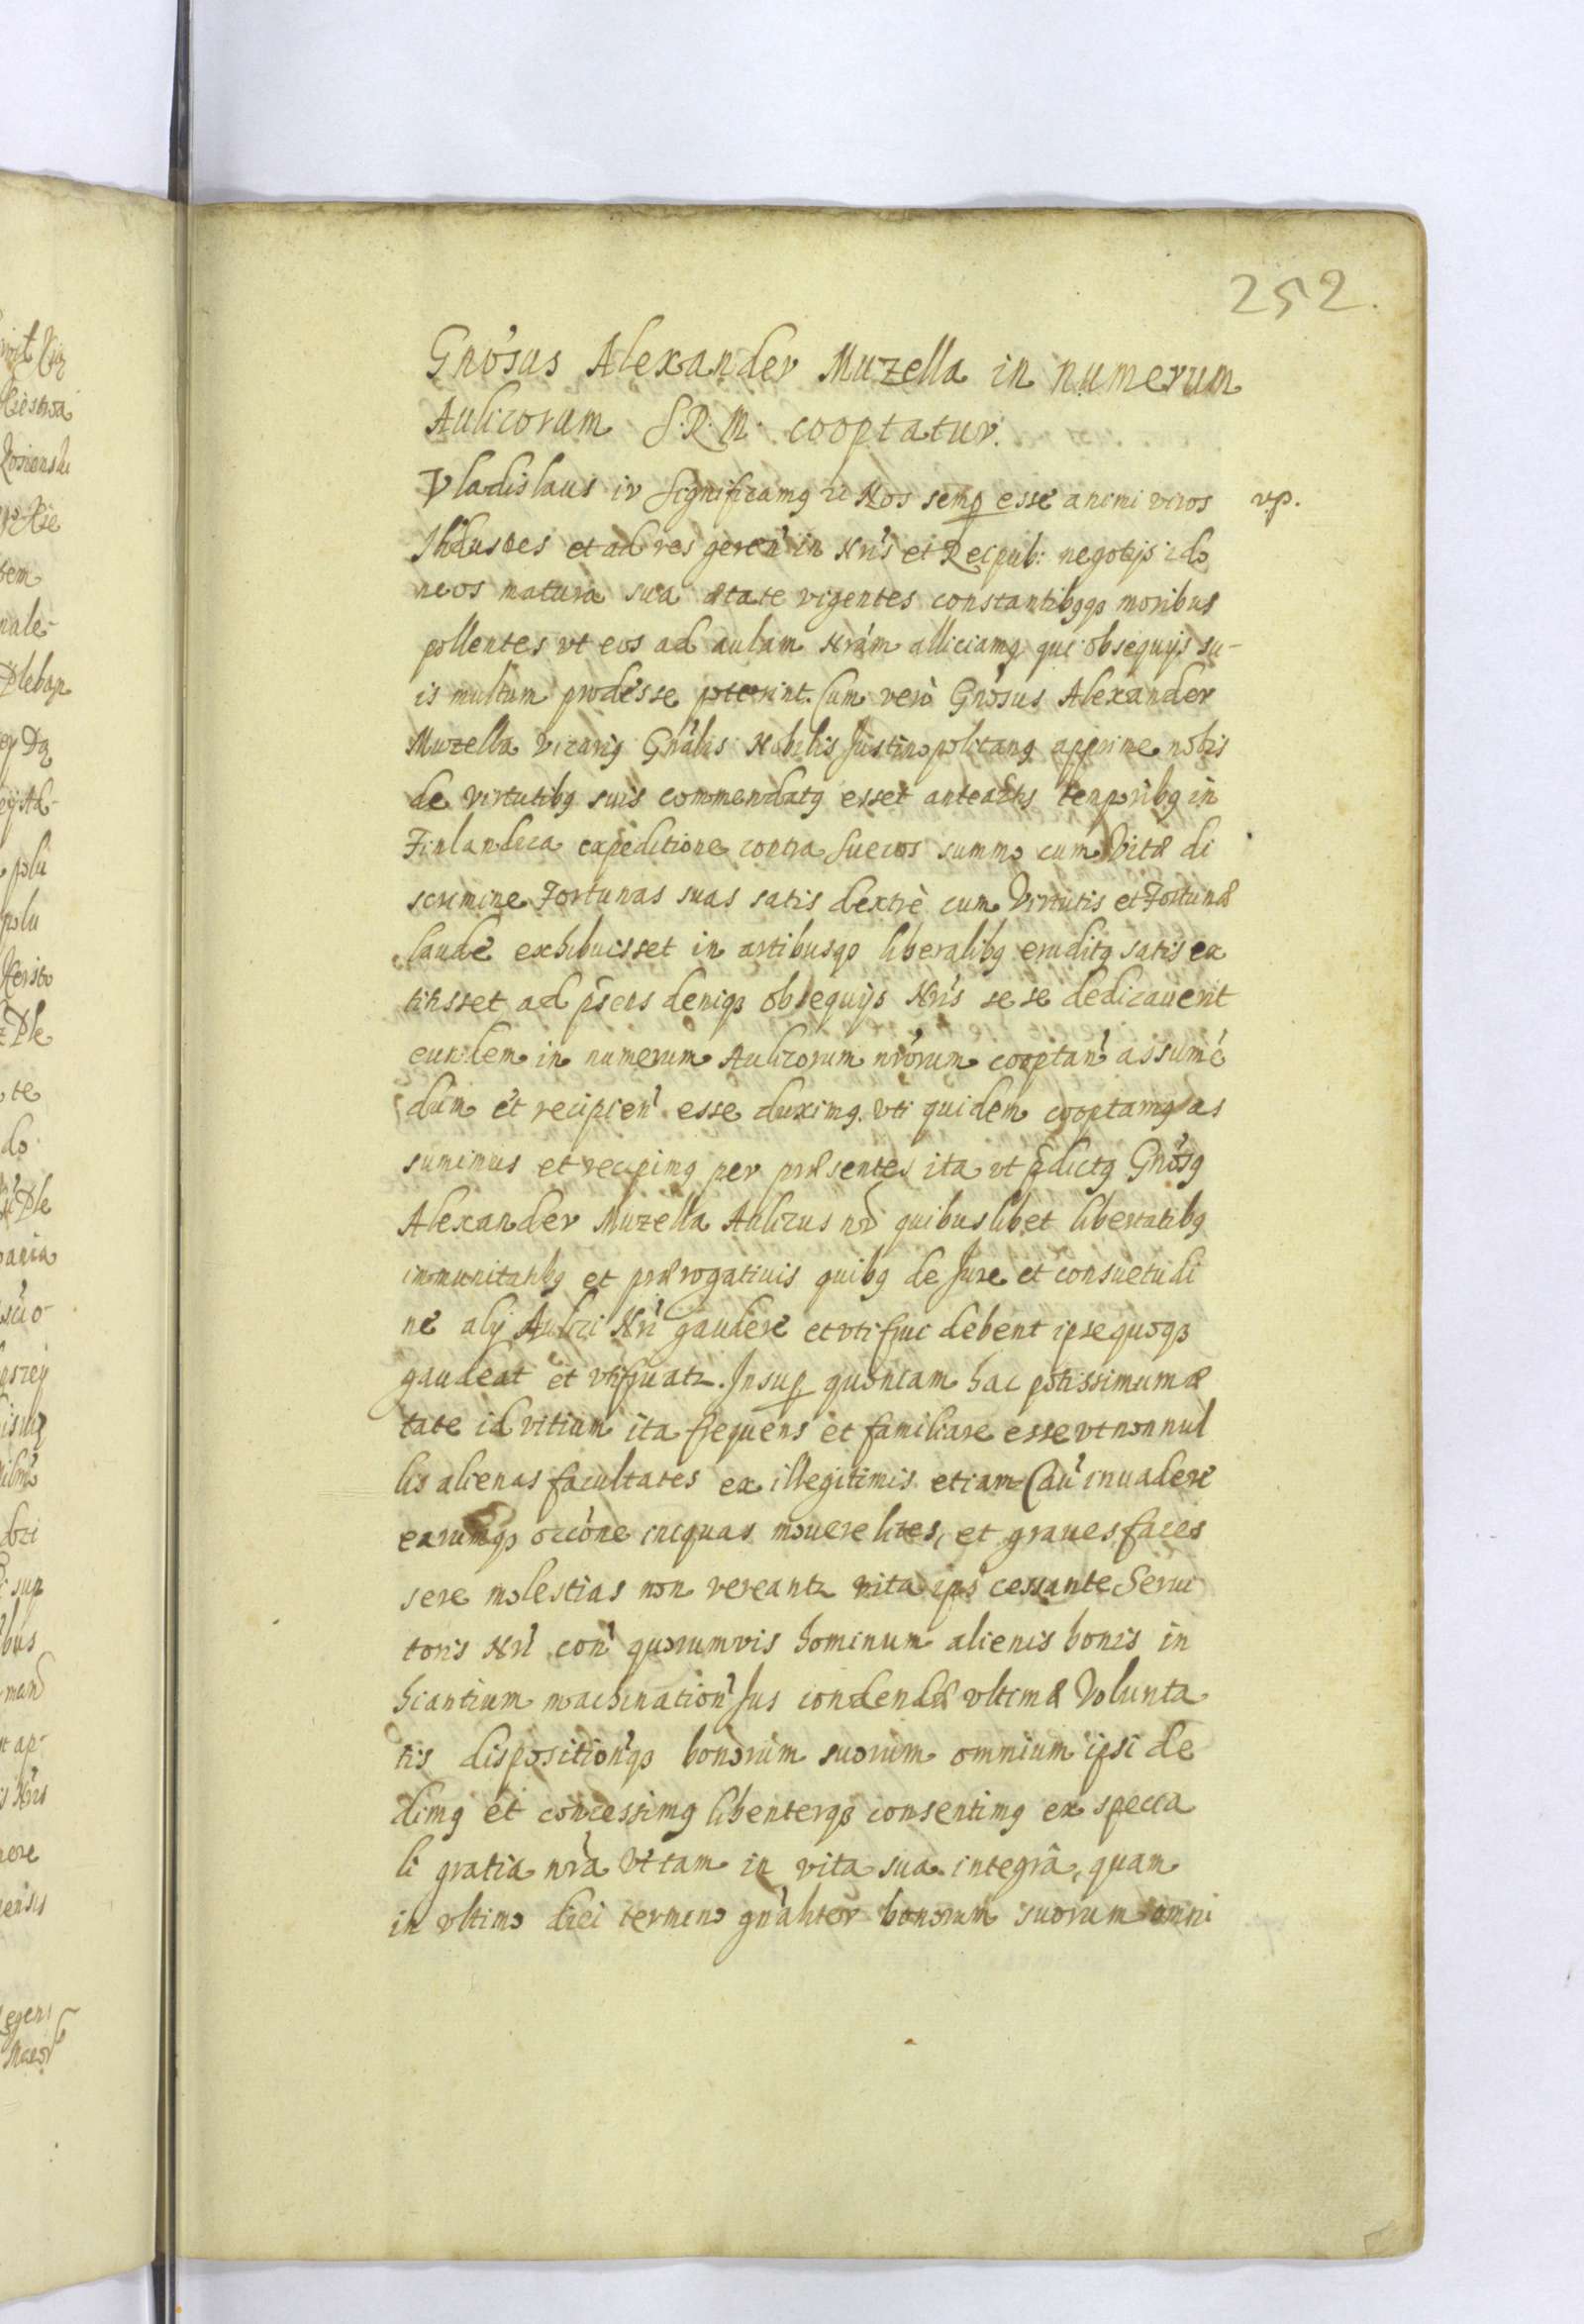 252.
Gnosus Alexander Muzella in numerum
Aulicorum S. R. M. cooptatur.
Vladislaus iv Significamq Nos semp esse animi viros vp.
Illustres et ad res geren' in Nri's et Reipub: negotijs ido
neos matura sua ætate vigentes constantibqq moribus
pollentes vt eos ad aulam Nra'm alliciamq qui obsequijs su-
is multum prodesse poterint. Cum verò Gnosus Alexander
Muzella Vicariq Gn'alis Nobilis Justinopolitanq apprime nobis
de virtutibq suis commendatq esset anteactis temporibq in
Finlandica expeditione contra Suecos summo cum Vitæ di
scrimine Fortunas suas satis dextrè cum Virtutis et Fortunæ
laude exhibuisset in artibusqs liberalibq eruditq satis ex
titisset ad p̃sens deniqs obsequijs Nri's se se dedicauerit
eundem in numerum Aulicorum nro'rum cooptan' assume'
dum et recipien' esse duximq. vti quidem cooptamq as
sumimus et recipimq per præsentes ita vt p̃dictq Gno'sq
Alexander Muzella Aulicus nr̃ quibuslibet libertatibq
immunitatibq et prærogatiuis quibq de Jure et consuetudi
ne alij Aulici Nri' gaudere et vti frui debent ipse quoqs
gaudeat et vtifruatz. Insup quoniam hac potissimum æ
tate id vitium ita frequens et familiare esse vt nonnul
lis alienas facultates ex illegitimis etiam Cau' inuadere
earumqs occo'ne iniquas mouere lites, et graues faces
sere molestias non vereantz vita ips' cessante Serui
toris Nri' con' quorumvis hominum alienis bonis in
hiantium machination' Jus condendæ vltimæ Volunta
tis disposition'qs bonorum suorum omnium ipsi de
dimq et concessimq libenterqs consentimq ex specia
li gratia nra' Vt tam in vita sua integrâ, quam
in vltimo diei termino gn'aliter bonorum suorum omni